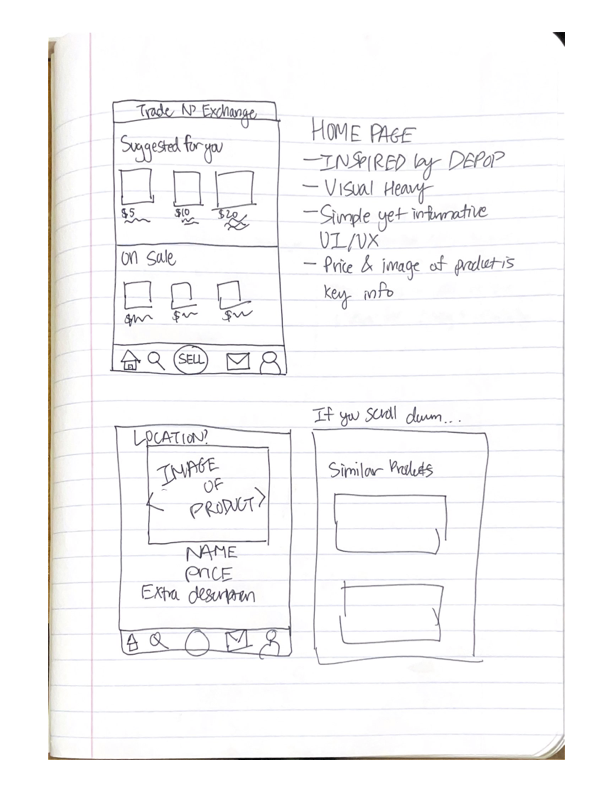 Trade No Exchange
Suggested for you
$5 $10 $20
On Sale
$ $ $
SELL
HOME PAGE
- INSPIRED by DEPOP
- Visual Heavy
- Simple yet informative
UI/UX
- Price & image of product is
key info
LOCATION?
IMAGE
OF
PRODUCT
NAME
PRICE
Extra description
If you scroll down...
Similar Products